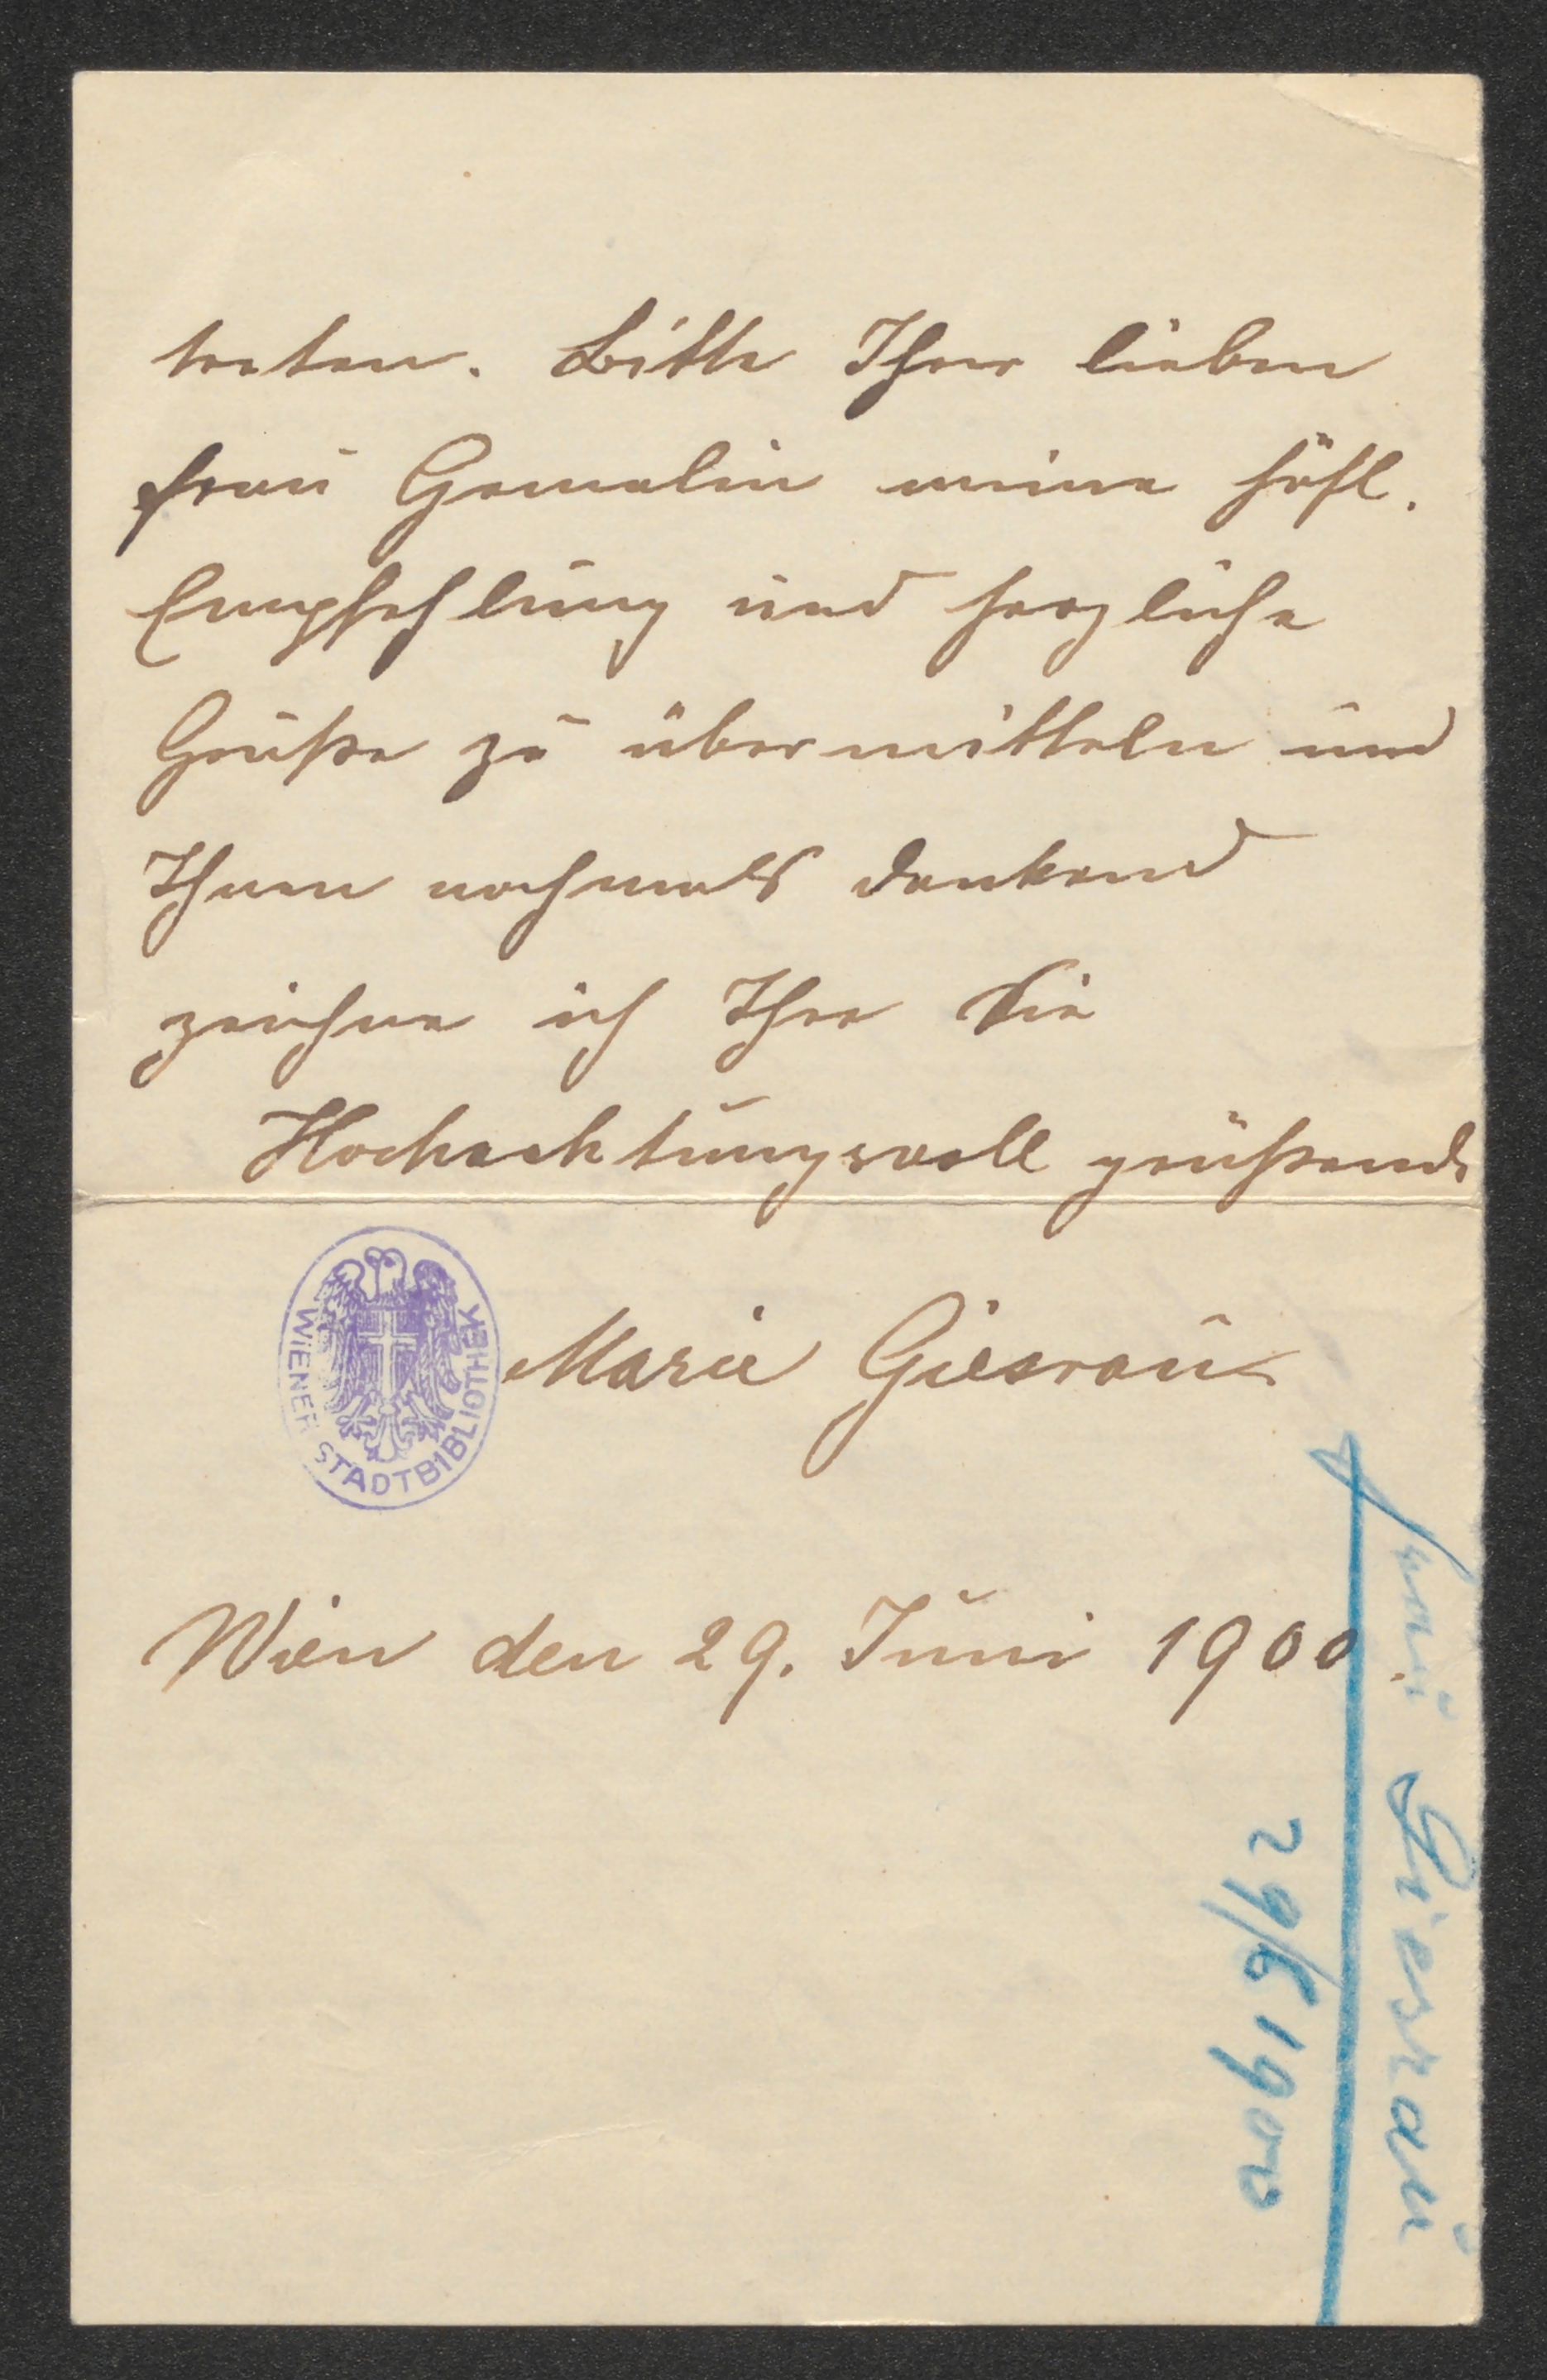 treten. Bitte Ihrer lieben
Frau Gemalin meine höfl.
Empfehlung und herzliche
Grüße zu übermitteln und
Ihnen nochmals dankend
zeichne ich Ihre Sie
Hochachtungsvoll grüßende
WIENER STADTBIBLIOTHEK
Marie Giesrau
Wien den 29. Juni 1900.
Frau Giesrau
29/6 1900